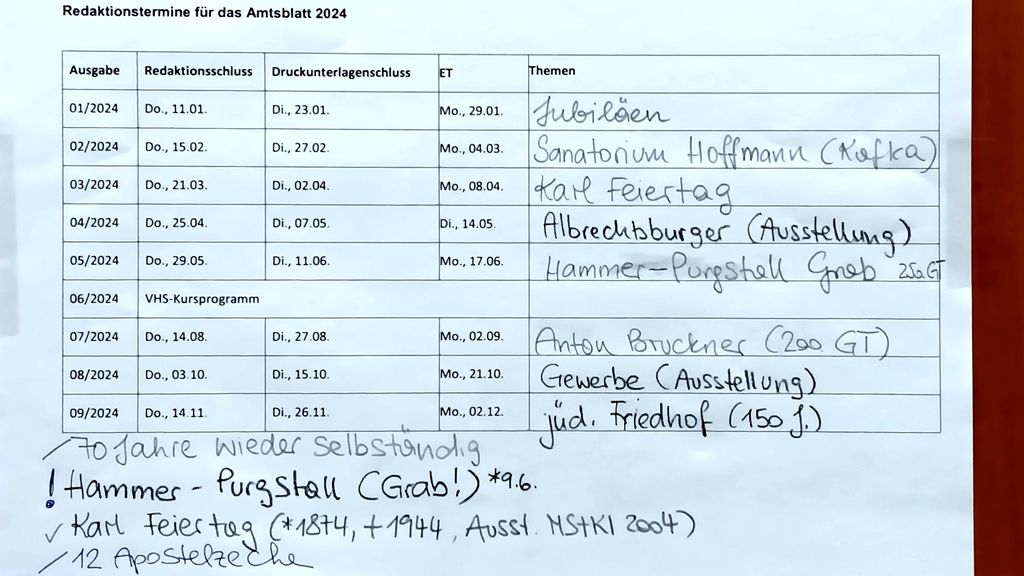 Redaktionstermine für das Amtsblatt 2024
Ausgabe Redaktionsschluss Druckunterlagenschluss ET Themen
01/2024 Do., 11.01. Di., 23.01. Mo., 29.01. Jubiläen
02/2024 Do., 15.02. Di., 27.02. Mo., 04.03. Sanatorium Hoffmann (Kafka)
03/2024 Do., 21.03. Di., 02.04. Mo., 08.04. Karl Feiertag
04/2024 Do., 25.04. Di., 07.05. Di., 14.05. Albrechtsburger (Ausstellung)
05/2024 Do., 29.05. Di., 11.06. Mo., 17.06. Hammer-Purgstall Grab 250 GT
06/2024 VHS-Kursprogramm
07/2024 Do., 14.08. Di., 27.08. Mo., 02.09. Anton Bruckner (200. GT)
08/2024 Do., 03.10. Di., 15.10. Mo., 21.10. Gewerbe (Ausstellung)
09/2024 Do., 14.11. Di., 26.11. Mo., 02.12. jüd. Friedhof (150 J.)
/ 70 Jahre wieder selbständig
! Hammer - Purgstall (Grab!) *9.6.
✓ Karl Feiertag (*1874, +1944, Ausst. NStKl 2004)
/ 12 Apostelzeche